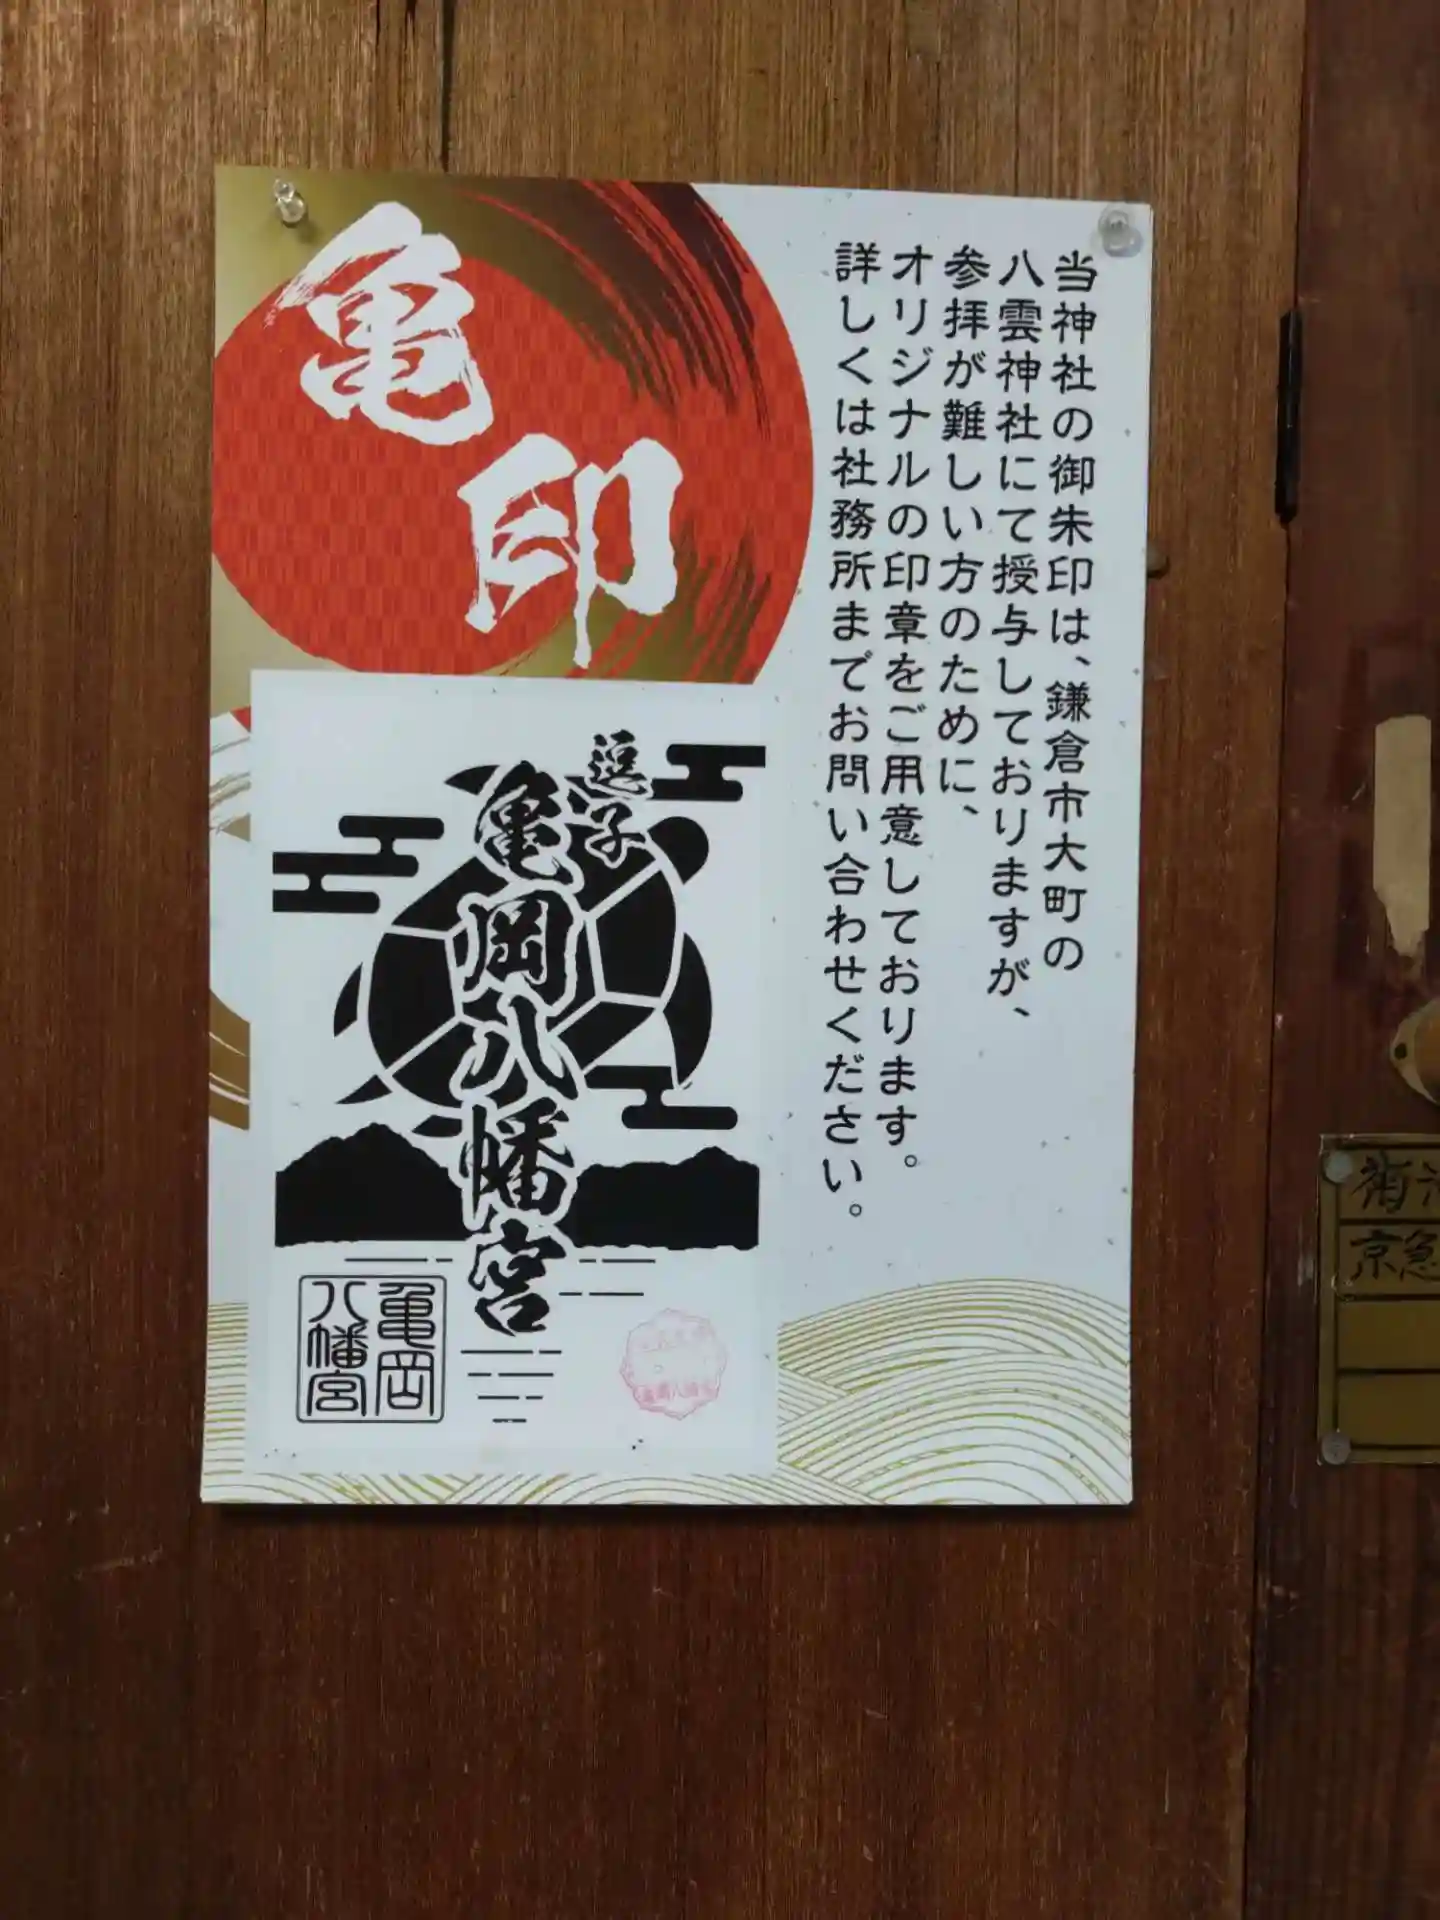 亀印
当神社の御朱印は、鎌倉市大町の
八雲神社にて授与しておりますが、
参拝が難しい方のために、
オリジナルの印章をご用意しております。
詳しくは社務所までお問い合わせください。
逗子
亀岡八幡宮
亀岡
八幡宮
京急